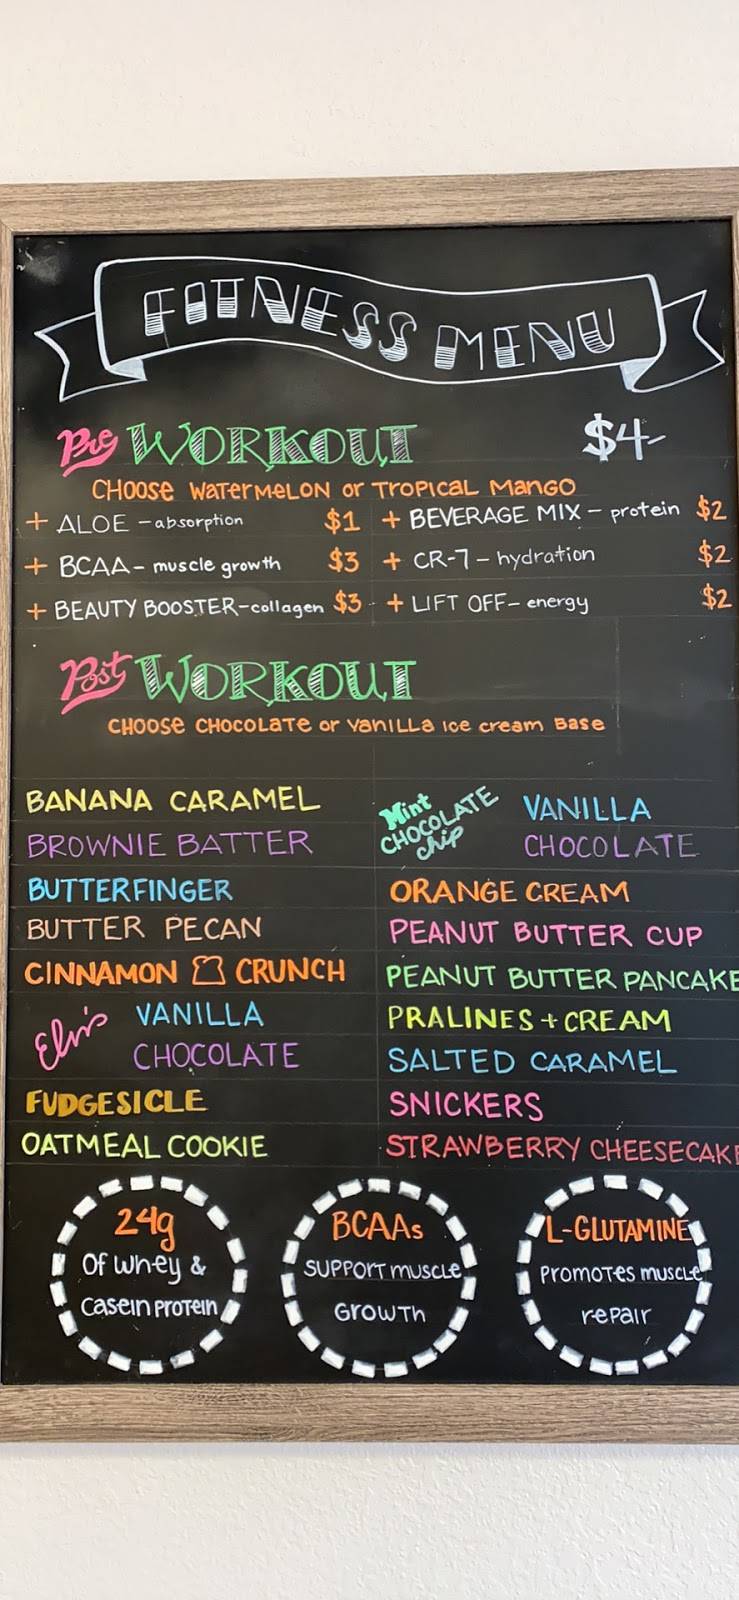 FITNESS MENU
Pre WORKOUT $4-
CHOOSE WATERMELON or TROPICAL MANGO
+ ALOE - absorption $1 + BEVERAGE MIX - protein $2
+ BCAA - muscle growth $3 + CR-7 - hydration $2
+ BEAUTY BOOSTER - collagen $3 + LIFT OFF - energy $2
Post WORKOUT
CHOOSE CHOCOLATE or VANILLA ICE CREAM BASE
BANANA CARAMEL
BROWNIE BATTER
BUTTERFINGER
BUTTER PECAN
CINNAMON CRUNCH
Elvis VANILLA
CHOCOLATE
FUDGESICLE
OATMEAL COOKIE
Mint CHOCOLATE chip VANILLA
CHOCOLATE
ORANGE CREAM
PEANUT BUTTER CUP
PEANUT BUTTER PANCAKE
PRALINES + CREAM
SALTED CARAMEL
SNICKERS
STRAWBERRY CHEESECAKE
24g
Of whey &
Casein Protein
BCAAs
SUPPORT muscle
GROWTH
L-GLUTAMINE
Promotes muscle
repair